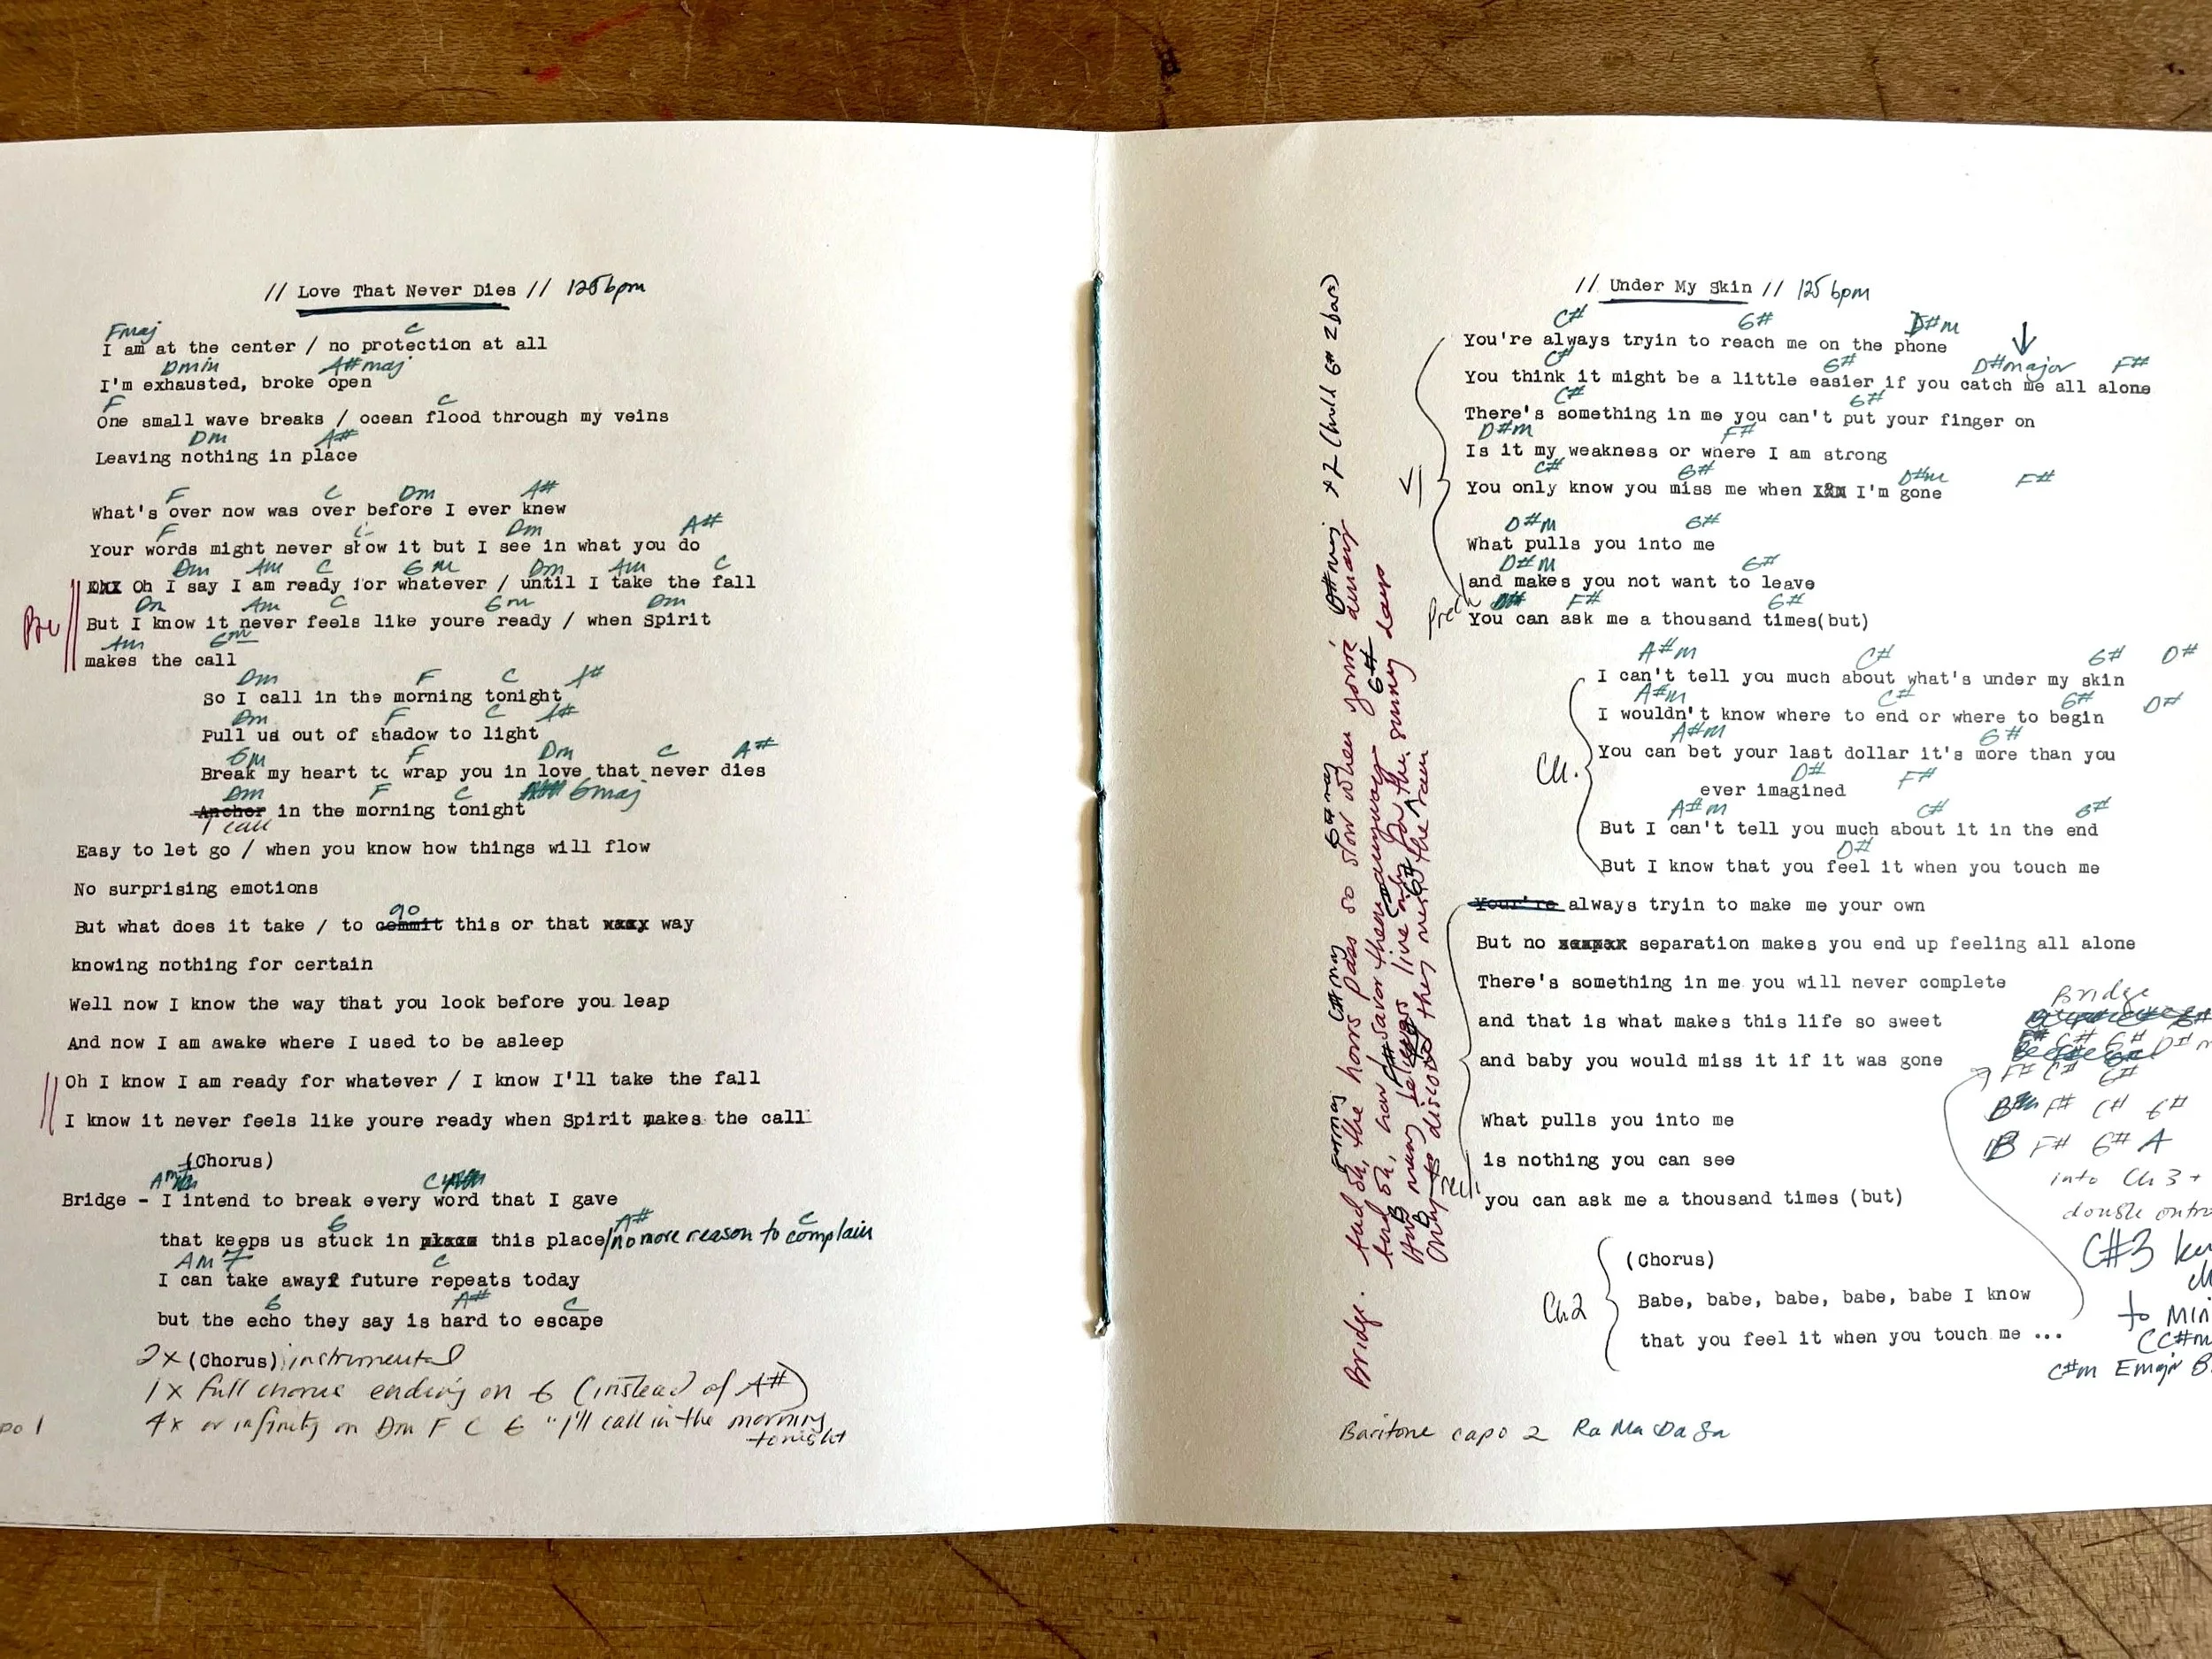 // Love That Never Dies // 125 bpm
Fmaj C
I am at the center / no protection at all
Dmin A#maj
I'm exhausted, broke open
F C
One small wave breaks / ocean flood through my veins
Dm A#
Leaving nothing in place
F C Dm A#
What's over now was over before I ever knew
F C Dm A#
Your words might never show it but I see in what you do
Dm Am C Gm Dm Am C
Oh I say I am ready for whatever / until I take the fall
Dm Am C Gm Dm
Pre But I know it never feels like youre ready / when Spirit
Am Gm
makes the call
Dm F C A#
So I call in the morning tonight
Dm F C A#
Pull us out of shadow to light
Gm F Dm C A#
Break my heart to wrap you in love that never dies
Dm F C Gmaj
Anchor in the morning tonight
I call
Easy to let go / when you know how things will flow
No surprising emotions
go
But what does it take / to commit this or that way
knowing nothing for certain
Well now I know the way that you look before you leap
And now I am awake where I used to be asleep
Oh I know I am ready for whatever / I know I'll take the fall
I know it never feels like youre ready when Spirit makes the call
(Chorus)
Am C
Bridge - I intend to break every word that I gave
G A# C
that keeps us stuck in this place/no more reason to complain
Am7 C
I can take away future repeats today
G A# C
but the echo they say is hard to escape
2x (Chorus) instrumental
1x full chorus ending on G (instead of A#)
4x or infinity on Dm F C G "I'll call in the morning
tonight
po 1
// Under My Skin // 125 bpm
C# G# D#m
You're always tryin to reach me on the phone
C# G# D#major F#
You think it might be a little easier if you catch me all alone
C# G#
There's something in me you can't put your finger on
D#m F#
Is it my weakness or where I am strong
C# G# D#m F#
V1 You only know you miss me when I'm gone
D#m G#
What pulls you into me
D#m G#
and makes you not want to leave
F# G#
Prech You can ask me a thousand times(but)
A#m C# G# D#
I can't tell you much about what's under my skin
A#m C# G# D#
I wouldn't know where to end or where to begin
A#m G#
Ch. You can bet your last dollar it's more than you
D# F#
ever imagined
A#m C# G#
But I can't tell you much about it in the end
D#
But I know that you feel it when you touch me
Your're always tryin to make me your own
But no separation makes you end up feeling all alone
There's something in me you will never complete
and that is what makes this life so sweet
and baby you would miss it if it was gone
What pulls you into me
is nothing you can see
you can ask me a thousand times (but)
(Chorus)
Ch2 Babe, babe, babe, babe, babe I know
that you feel it when you touch me ...
Bridge
F# C# G#
F# C# G#
F# C# G#
B F# G# A
into Ch 3 +
double outro
C#3
to min
C#m Emajr B
Bridge. And oh, the hours pass so slow when you're away
And oh, how I savor them anyway
How many believers live only for the sunny days
Only to discover they need the rain
Baritone capo 2 Ra Ma Da Sa